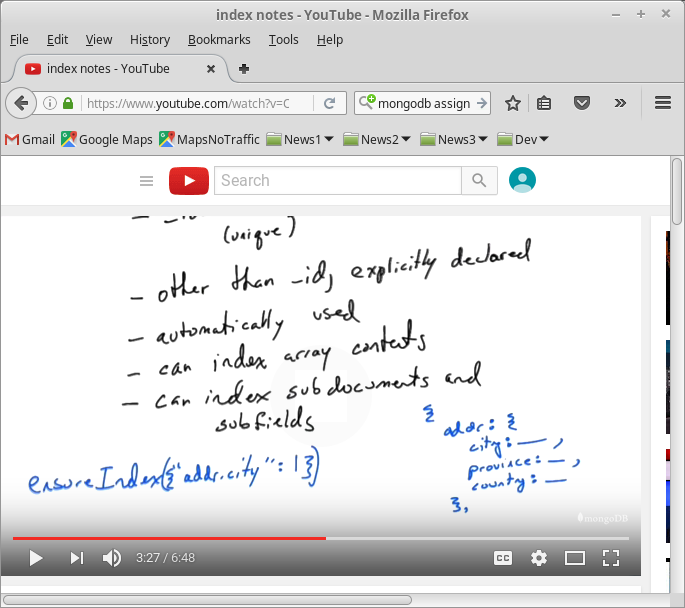 index notes - YouTube - Mozilla Firefox
File Edit View History Bookmarks Tools Help
index notes - YouTube
https://www.youtube.com/watch?v=C
mongodb assign
Gmail Google Maps MapsNoTraffic News1 News2 News3 Dev
Search
(unique)
- other than _id, explicitly declared
- automatically used
- can index array contents
- can index subdocuments and
subfields
{
addr: {
city: —,
province: —,
country: —
},
ensureIndex({"addr.city": 1})
mongoDB
3:27 / 6:48
CC